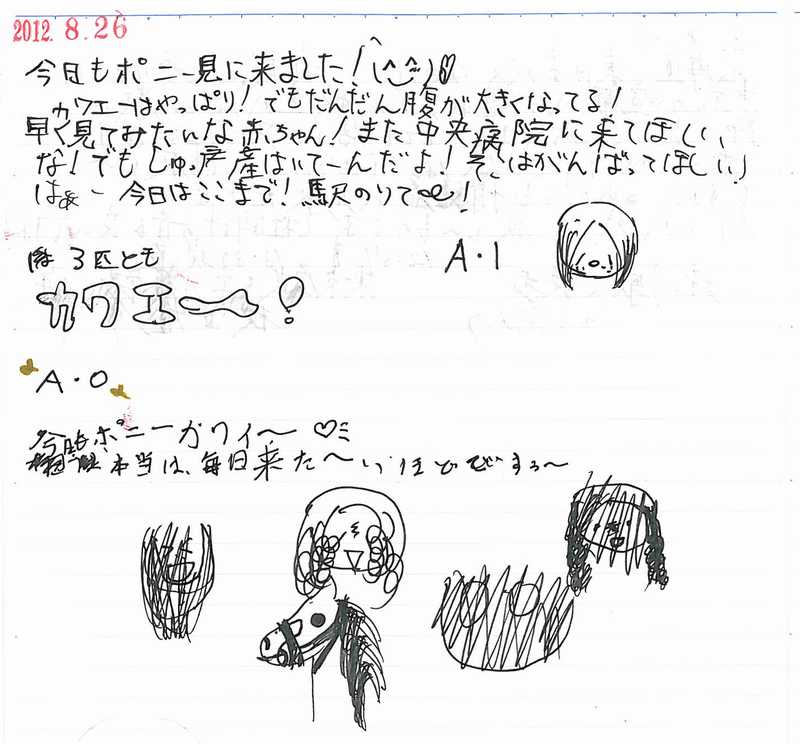 2012. 8.26
今日もポニー見に来ました!(^^)
カワエーはやっぱり!でもだんだん腹が大きくなってる!
早く見てみたいな赤ちゃん!また中央病院に来てほしい、
な!でもしゅっ産はいてーんだよ!そこはがんばってほしい」
はぁー今日はここまで!駅のりて
3匹とも
A・I
カワエ〜!
A・O
今日もポニーカワイ〜♡
本当は、毎日来た〜いほどですぅ〜